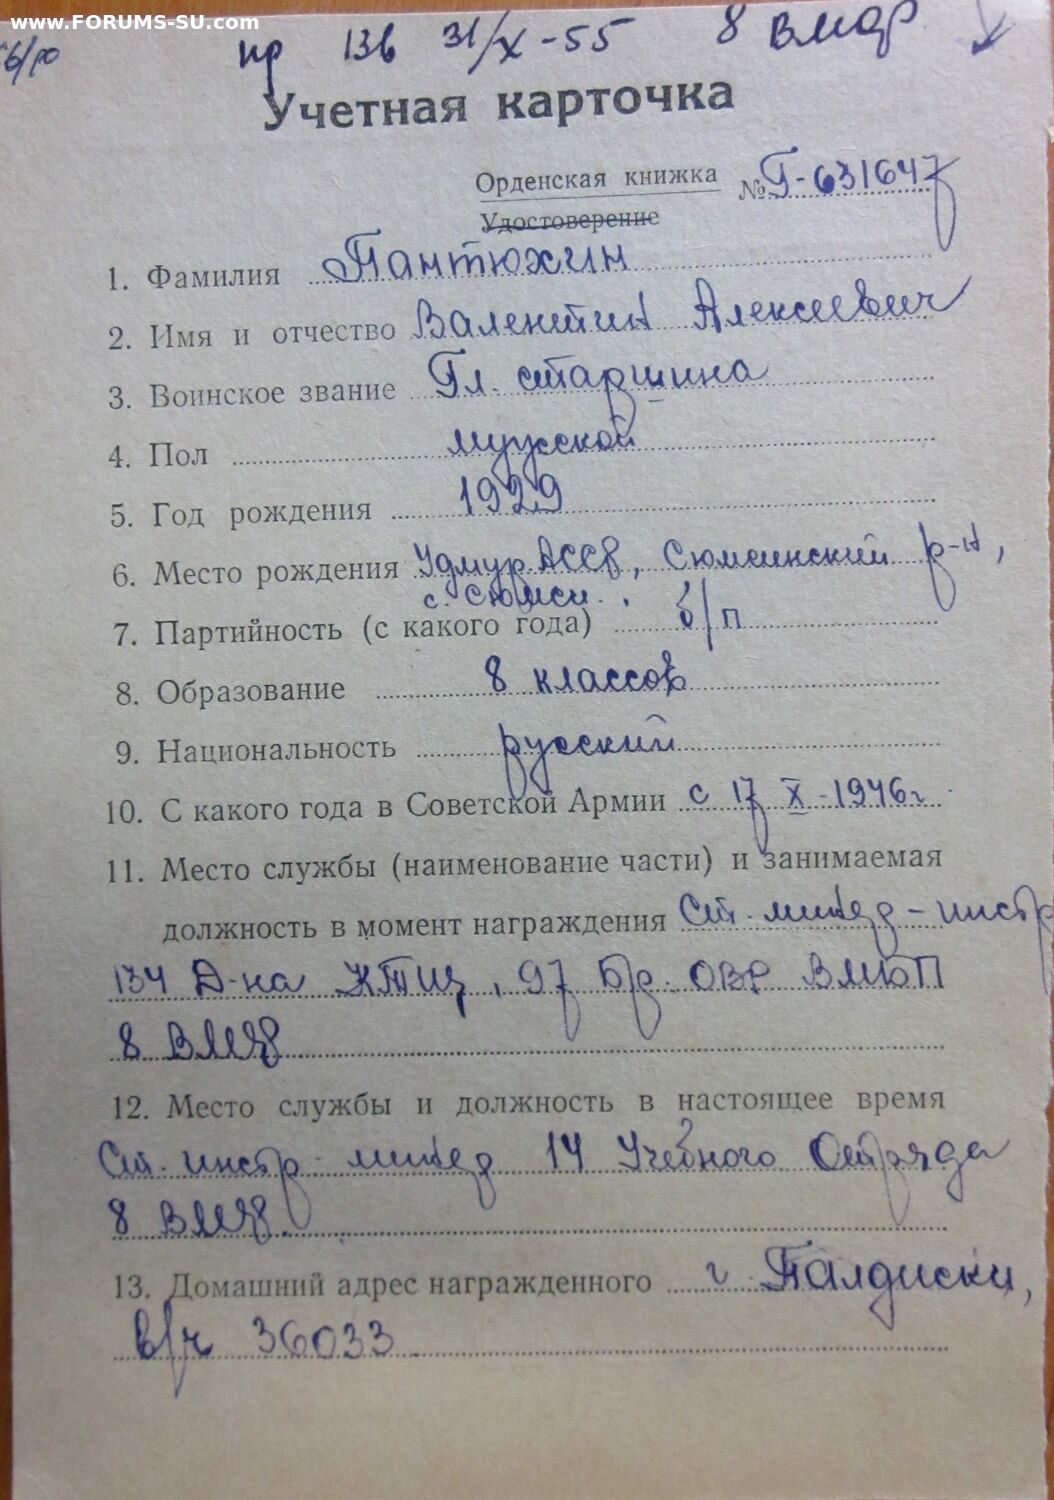 www.FORUMS-SU.com
пр 136 31/X-55 8 ВМФ
Учетная карточка
Орденская книжка №Г-631647
Удостоверение
1. Фамилия Пантюхин
2. Имя и отчество Валентин Алексеевич
3. Воинское звание Гл. старшина
4. Пол мужской
5. Год рождения 1929
6. Место рождения Удмур АССР, Сюмсинский р-н,
с. Сюмси.
7. Партийность (с какого года) б/п
8. Образование 8 классов
9. Национальность русский
10. С какого года в Советской Армии с 17 X-1946г
11. Место службы (наименование части) и занимаемая
должность в момент награждения Ст. минёр-инстр
134 Д-на КТЩ, 97 бр. ОВР ВМБП
8 ВМФ
12. Место службы и должность в настоящее время
Ст. инстр минёр 14 Учебного Отряда
8 ВМФ.
13. Домашний адрес награжденного г. Палдиски,
в/ч 36033